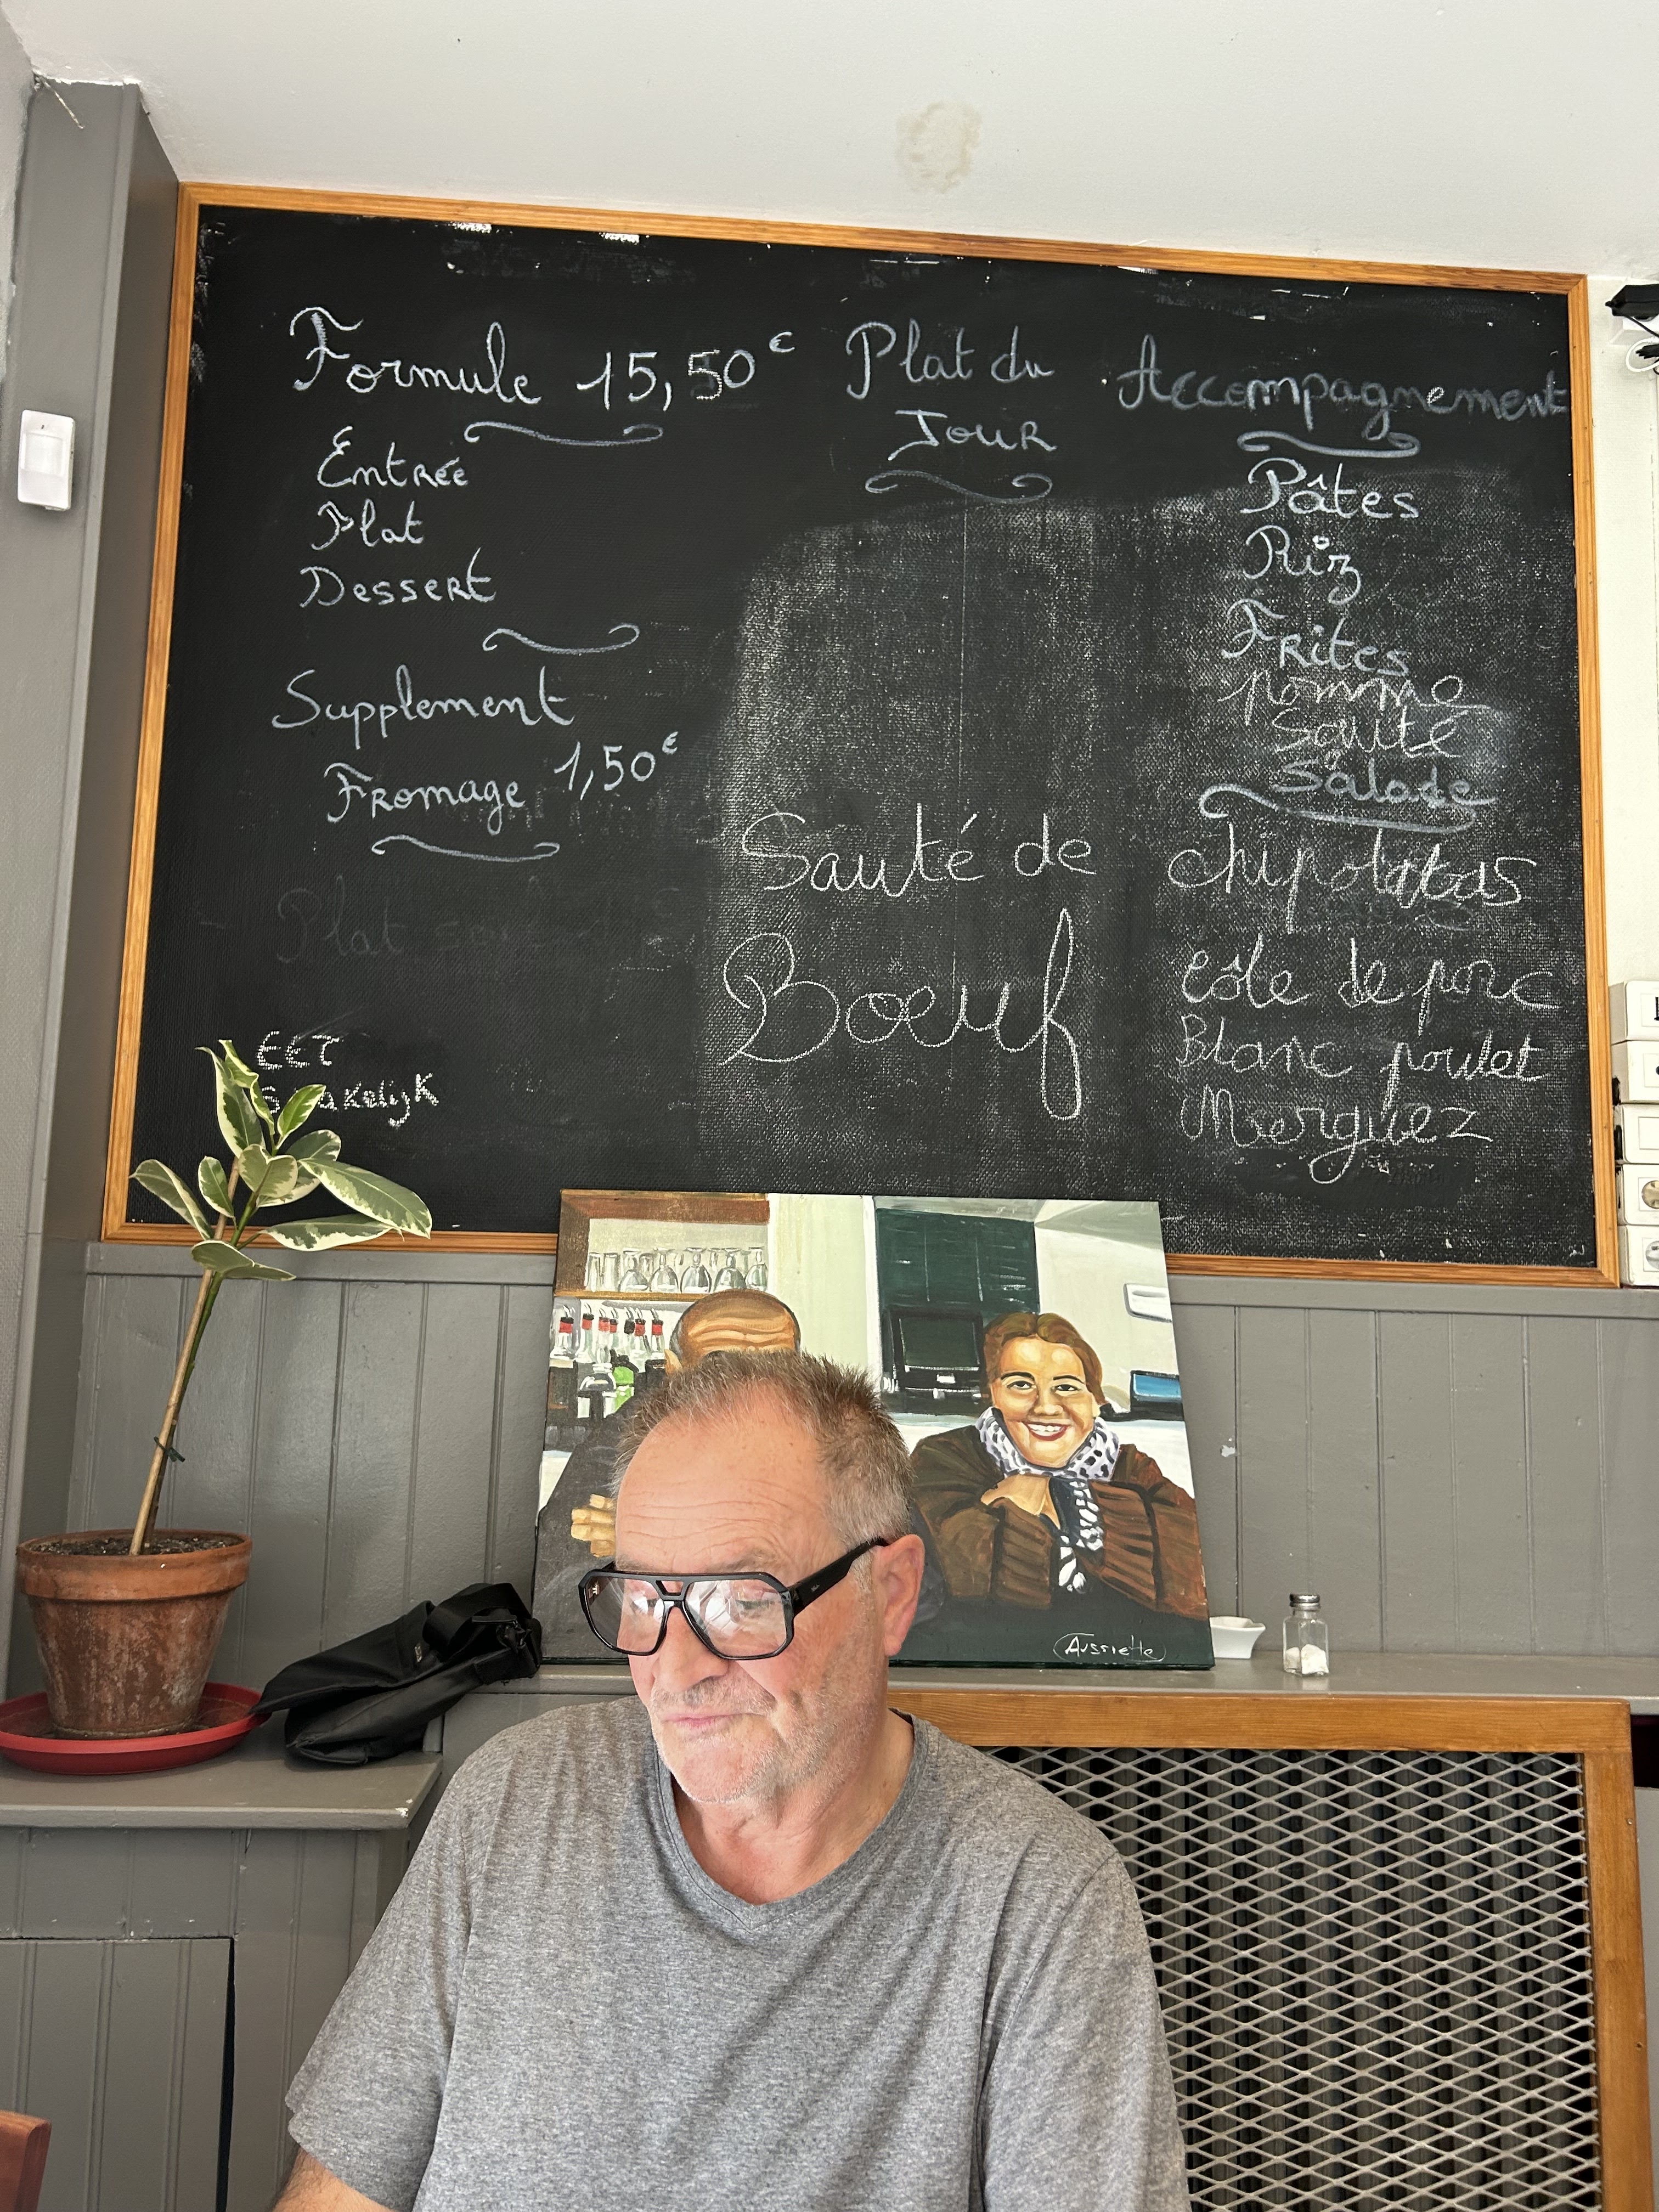 Formule 15,50€
Entrée
Plat
Dessert
Supplement
Fromage 1,50€
Plat
EET
Plat du
Jour
Sauté de
Boeuf
Accompagnement
Pâtes
Riz
Frites
pomme
Sauté
Salade
chipolatas
Côte de porc
Blanc poulet
Merguez
Aussiette